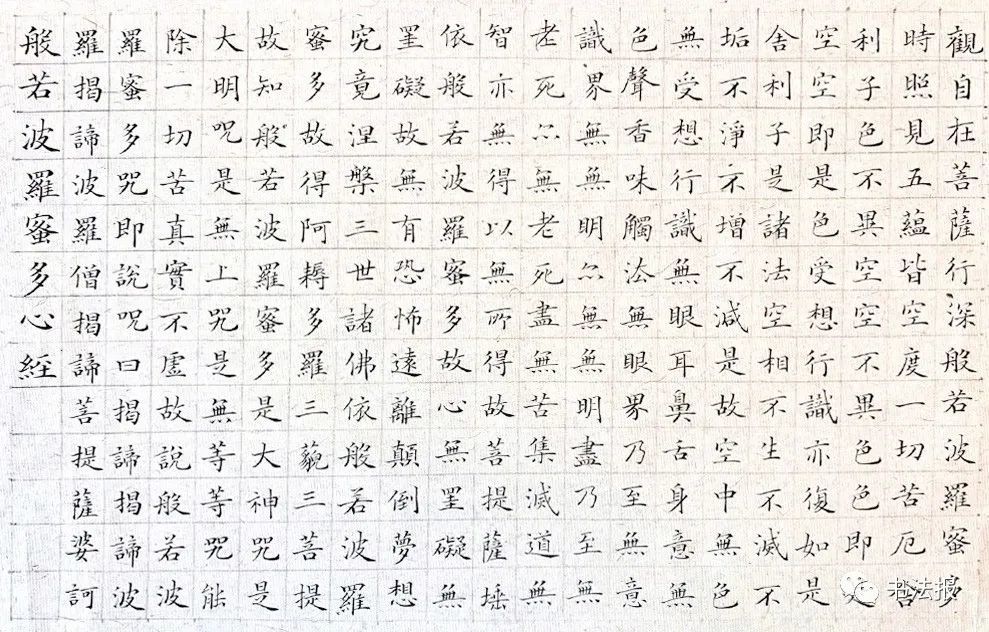 觀自在菩薩行深般若波羅蜜多
時照見五蘊皆空度一切苦厄舍
利子色不異空空不異色色即是
空空即是色受想行識亦復如是
舍利子是諸法空相不生不滅不
垢不淨不增不減是故空中無色
無受想行識無眼耳鼻舌身意無
色聲香味觸法無眼界乃至無意
識界無無明尒無無明盡乃至無
老死尒無老死盡無苦集滅道無
智亦無得以無所得故菩提薩埵
依般若波羅蜜多故心無罣礙無
罣礙故無有恐怖遠離顛倒夢想
究竟涅槃三世諸佛依般若波羅
蜜多故得阿耨多羅三藐三菩提
故知般若波羅蜜多是大神咒是
大明咒是無上咒是無等等咒能
除一切苦真實不虛故說般若波
羅蜜多咒即說呪曰揭諦揭諦波
羅揭諦波羅僧揭諦菩提薩婆訶
般若波羅蜜多心經
书法报